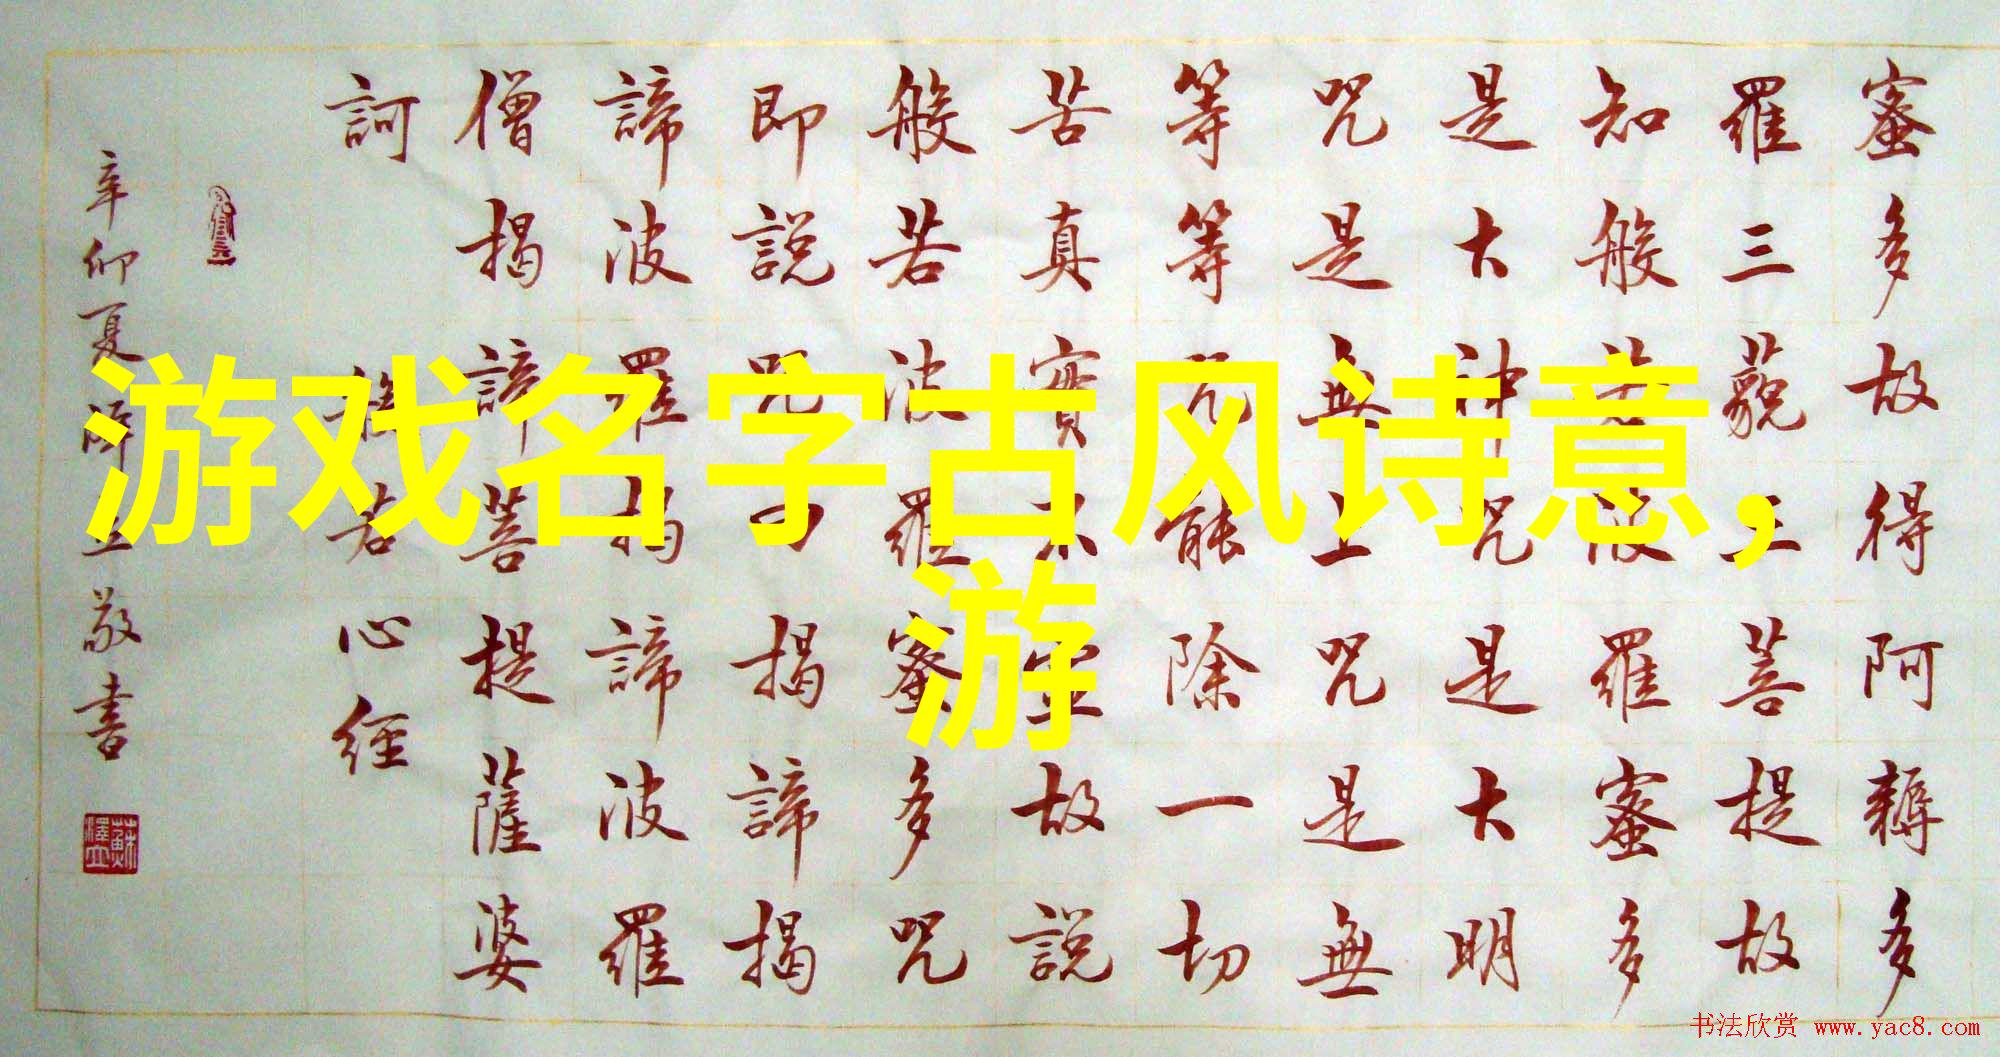 游戏名字古风诗意，
游
蜜多故得阿耨多
羅三藐三菩提故
知般若波羅蜜多
是大神咒是大明
咒是無上咒是無
等等咒能除一切
苦真實不虛故說
般若波羅蜜多咒
即說咒曰揭諦揭
諦波羅揭諦波羅
僧揭諦菩提薩婆
訶
般若心經
辛卯夏澤立敬書
蘇澤立
书法欣赏 www.yac8.com